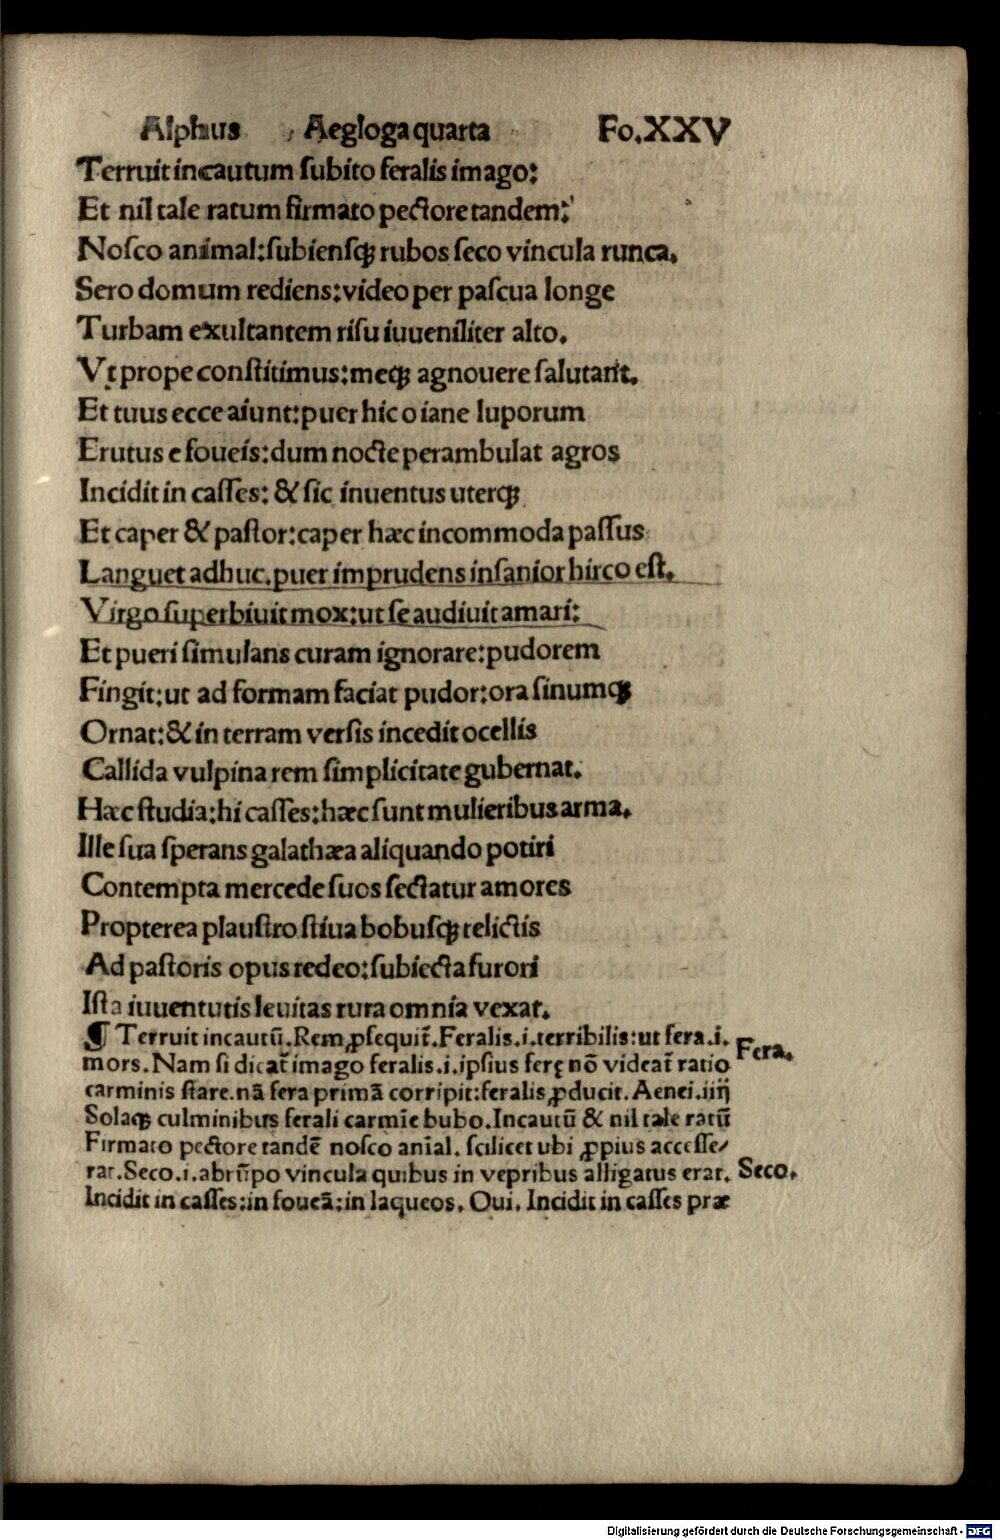 Alphus Aegloga quarta Fo.XXV
Terruit incautum ſubito feralis imago:
Et nil tale ratum firmato pectore tandem:
Noſco animal:ſubienſqꝫ rubos ſeco vincula runca.
Sero domum rediens:video per paſcua longe
Turbam exultantem riſu iuueniliter alto.
Vt prope conſtitimus:meqꝫ agnouere ſalutarit.
Et tuus ecce aiunt:puer hic o iane luporum
Erutus e foueis:dum nocte perambulat agros
Incidit in caſſes: & ſic inuentus uterqꝫ
Et caper & paſtor:caper hæc incommoda paſſus
Languet adhuc.puer imprudens inſanior hirco eſt.
Virgo ſuperbiuit mox:ut ſe audiuit amari:
Et pueri ſimulans curam ignorare:pudorem
Fingit:ut ad formam faciat pudor:ora ſinumqꝫ
Ornat:& in terram verſis incedit ocellis
Callida vulpina rem ſimplicitate gubernat.
Hæc ſtudia:hi caſſes:hæc ſunt mulieribus arma.
Ille ſua ſperans galathæa aliquando potiri
Contempta mercede ſuos ſectatur amores
Propterea plauſtro ſtiua bobuſqꝫ relictis
Ad paſtoris opus redeo:ſubiecta furori
Iſta iuuentutis leuitas rura omnia vexat.
¶ Terruit incautū.Rem ꝓſequit̃.Feralis.i.terribilis:ut fera.i. Fera.
mors.Nam ſi dicat̃ imago feralis.i.ipſius ferę nō videat̃ ratio
carminis ſtare.nā fera primā corripit:feralis ꝓducit.Aenei.iiij
Solaqꝫ culminibus ferali carmīe bubo.Incautū & nil tale ratū
Firmato pectore tandē noſco anīal. ſcilicet ubi ꝓpius acceſſe/
rat.Seco.i.abrūpo vincula quibus in vepribus alligatus erat. Seco.
Incidit in caſſes:in foueā:in laqueos. Oui. Incidit in caſſes præ
Digitalisierung gefördert durch die Deutsche Forschungsgemeinschaft - DFG